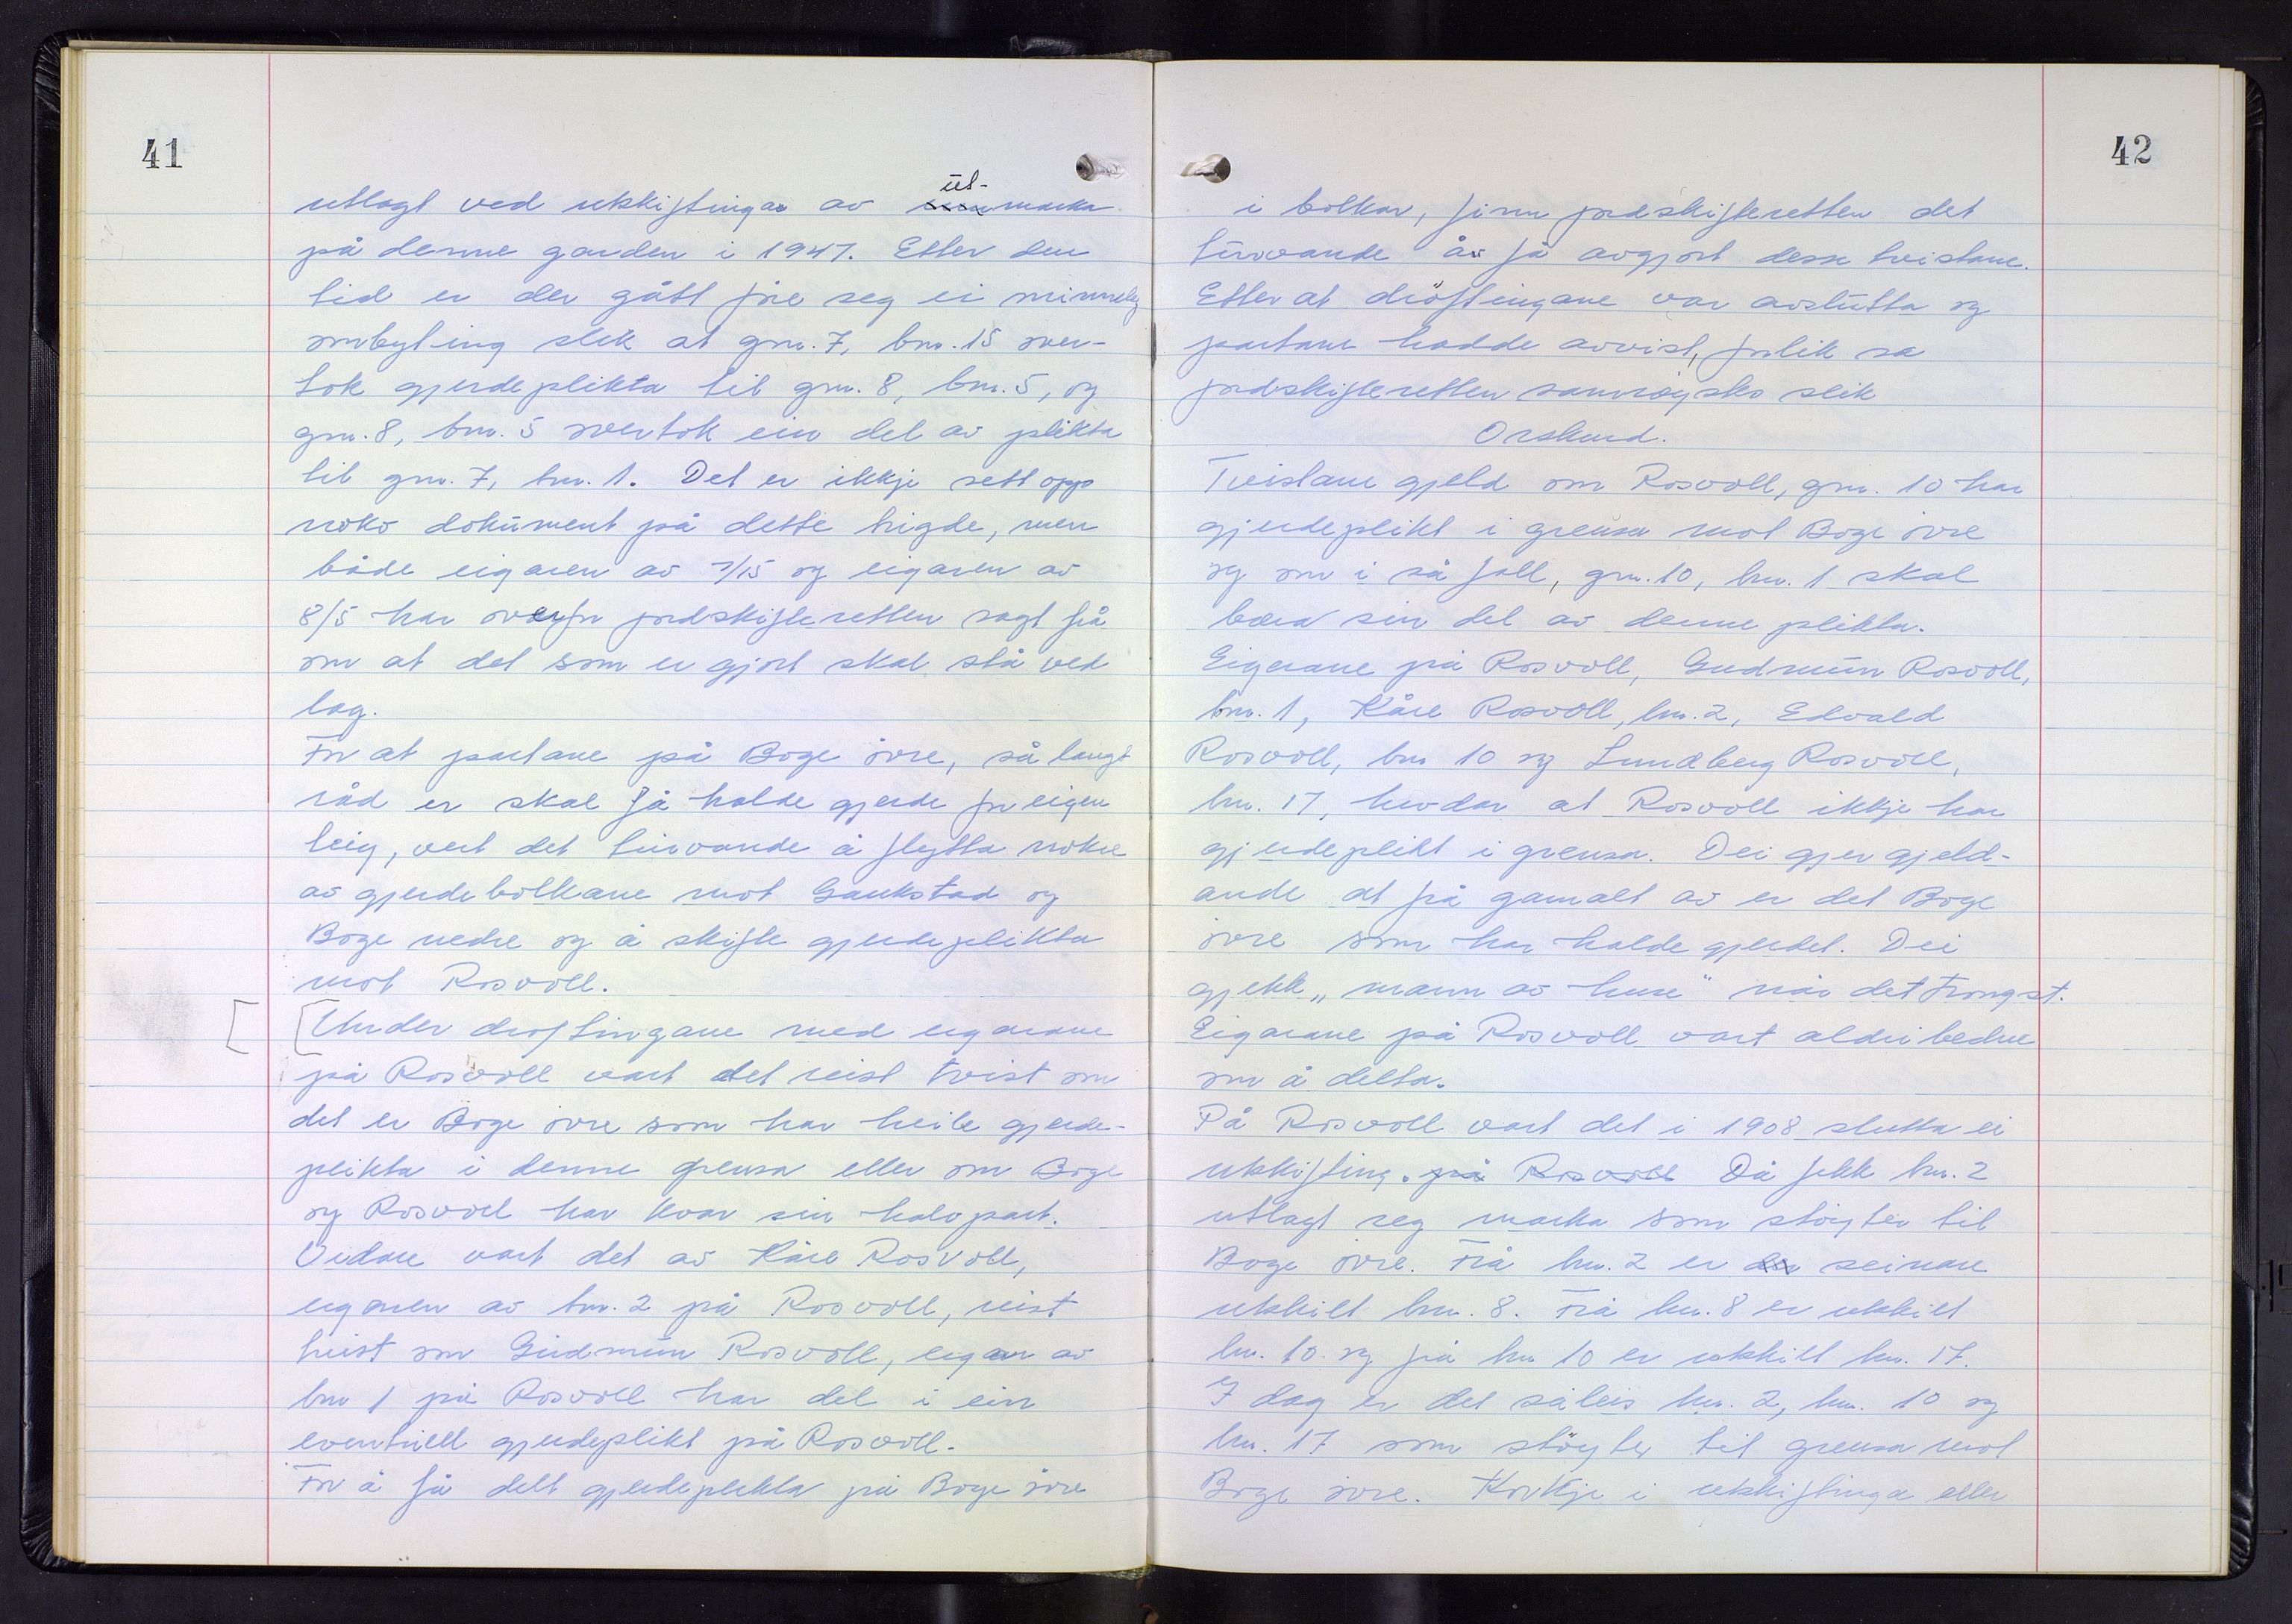 41
utlagt ved utskiftinga av ut-marka
på denne garden i 1947. Etter den
tid er der gått føre seg ei minneleg
ombyting slik at gnr. 7, bnr. 15 over-
tok gjerdeplikta til gnr. 8, bnr. 5, og
gnr. 8, bnr. 5 overtok ein del av plikta
til gnr. 7, bnr. 1. Det er ikkje sett opp
noko dokument på dette bigde, men
både eigaren av 7/15 og eigaren av
8/5 har overfor jordskifteretten sagt frå
om at det som er gjort skal stå ved
lag.
For at partane på Boge övre, så langt
råd er skal få halde gjerde for eigen
teig, vert det turvande å flytta nokre
av gjerdebolkane mot Gaukstad og
Boge nedre og å skifte gjerdeplikta
mot Rosvoll.
Under drøftingane med eigarane
på Rosvoll vart det reist tvist om
det er Boge övre som har heile gjerde-
plikta i denne grensa eller om Boge
og Rosvoll har kvar sin halvpart.
Vidare vart det av Kåre Rosvoll,
eigaren av bnr. 2 på Rosvoll, reist
tvist om Gudmun Rosvoll, eigar av
bnr 1 på Rosvoll har del i ein
eventuell gjerdeplikt på Rosvoll.
For å få delt gjerdeplikta på Boge övre
42
i bolkar, finn jordskifteretten det
turvande å få avgjort desse tvistane.
Etter at dröftingane var avslutta og
partane hadde avvist forlik sa
jordskifteretten samröystes slik
Orskurd.
Tvistane gjeld om Rosvoll, gnr. 10 har
gjerdeplikt i grensa mot Boge övre
og om i så fall, gnr. 10, bnr. 1 skal
bæra sin del av denne plikta.
Eigarane på Rosvoll, Gudmun Rosvoll,
bnr. 1, Kåre Rosvoll, bnr. 2, Edvald
Rosvoll, bnr 10 og Lundberg Rosvoll,
bnr. 17, hevdar at Rosvoll ikkje har
gjerdeplikt i grensa. Dei gjer gjeld-
ande at frå gamalt av er det Boge
övre som har halde gjerdet. Dei
gjekk "mann av huse" når det trongst.
Eigarane på Rosvoll vart aldri bedne
om å delta.
På Rosvoll vart det i 1908 slutta ei
utskifting. på Rosvoll Då fekk bnr. 2
utlagt seg marka som stöyter til
Boge övre. Frå bnr. 2 er seinare
utskilt bnr. 8. Frå bnr. 8 er utskilt
bnr. 10 og frå bnr 10 er utskilt bnr. 17.
I dag er det såleis bnr. 2, bnr. 10 og
bnr. 17 som stöyter til grensa mot
Boge övre. Korkje i utskiftinga eller